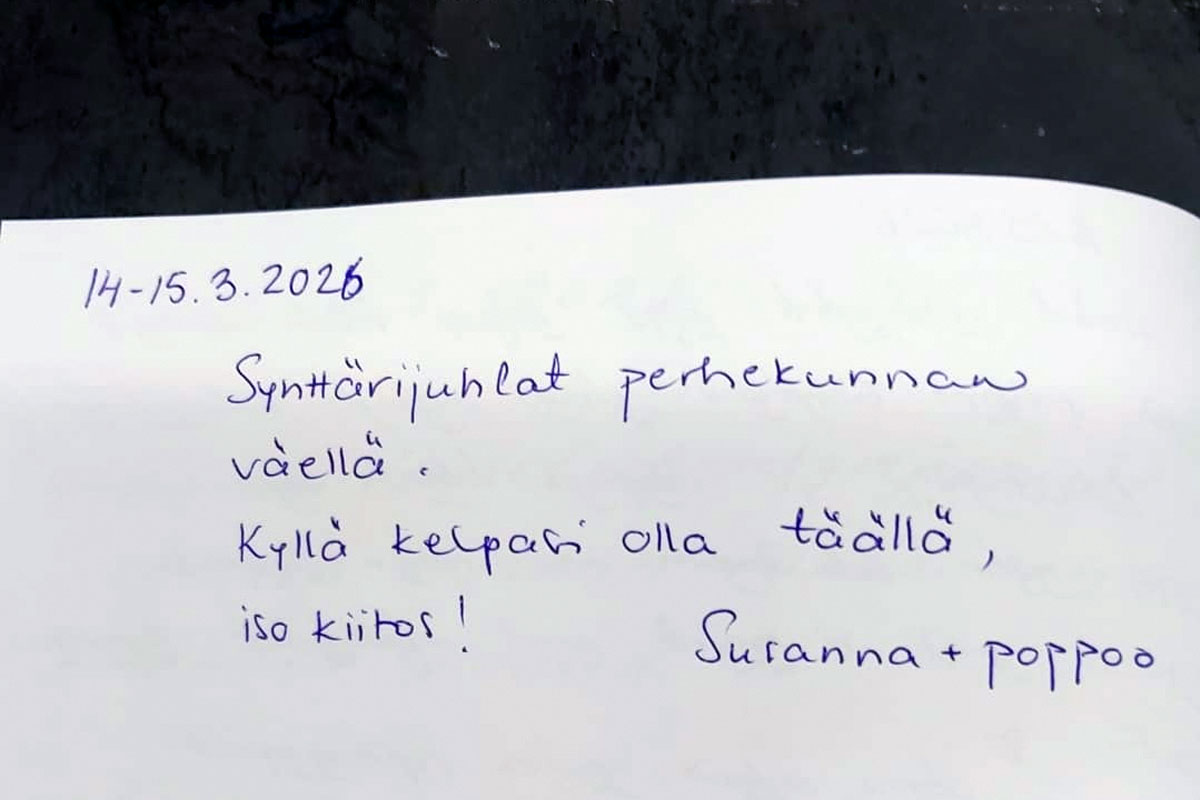 14-15.3.2026
Synttärijuhlat perhekunnan
väellä.
Kyllä kelpasi olla täällä,
iso kiitos!
Susanna + poppoo